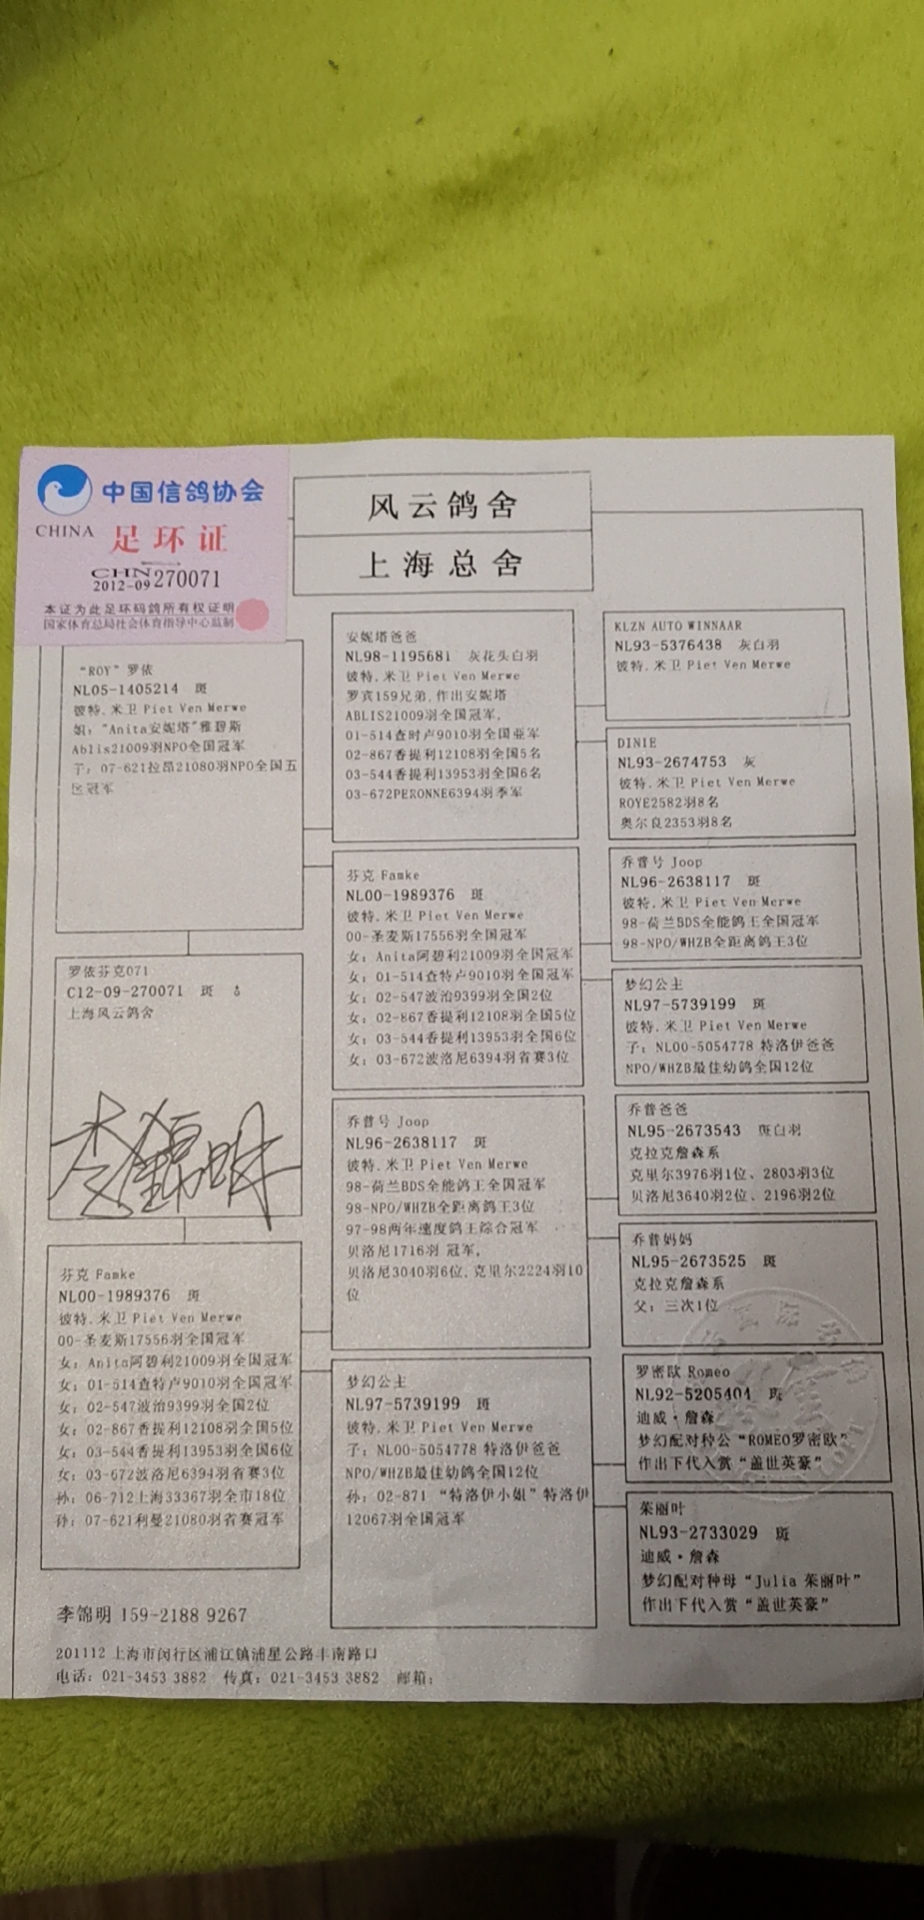 中国信鸽协会
CHINA 足环证
CHN
2012-09 270071
本证为此足环码鸽所有权证明
国家体育总局社会体育指导中心监制
风云鸽舍
上海总舍
“ROY”罗依
NL05-1405214 斑
彼特.米卫 Piet Ven Merwe
姐："Anita安妮塔"雅碧斯
Ablis21009羽NPO全国冠军
子：07-621拉昂21080羽NPO全国五
区冠军
罗依芬克071
C12-09-270071 斑 ♂
上海风云鸽舍
李锦明
芬克 Famke
NL00-1989376 斑
彼特.米卫 Piet Ven Merwe
00-圣麦斯17556羽全国冠军
女：Anita阿碧利21009羽全国冠军
女：01-514查特卢9010羽全国冠军
女：02-547波治9399羽全国2位
女：02-867香提利12108羽全国5位
女：03-544香提利13953羽全国6位
女：03-672波洛尼6394羽省赛3位
孙：06-712上海33367羽全市18位
孙：07-621利曼21080羽省赛冠军
安妮塔爸爸
NL98-1195681 灰花头白羽
彼特.米卫 Piet Ven Merwe
罗宾159兄弟.作出安妮塔
ABLIS21009羽全国冠军.
01-514查时卢9010羽全国亚军
02-867香提利12108羽全国5名
03-544香提利13953羽全国6名
03-672PERONNE6394羽季军
芬克 Famke
NL00-1989376 斑
彼特.米卫 Piet Ven Merwe
00-圣麦斯17556羽全国冠军
女：Anita阿碧利21009羽全国冠军
女：01-514查特卢9010羽全国冠军
女：02-547波治9399羽全国2位
女：02-867香提利12108羽全国5位
女：03-544香提利13953羽全国6位
女：03-672波洛尼6394羽省赛3位
乔普号 Joop
NL96-2638117 斑
彼特.米卫 Piet Ven Merwe
98-荷兰BDS全能鸽王全国冠军
98-NPO/WHZB全距离鸽王3位
97-98两年速度鸽王综合冠军
贝洛尼1716羽 冠军.
贝洛尼3040羽6位.克里尔2224羽10
位
梦幻公主
NL97-5739199 斑
彼特.米卫 Piet Ven Merwe
子：NL00-5054778 特洛伊爸爸
NPO/WHZB最佳幼鸽全国12位
孙：02-871 “特洛伊小姐”特洛伊
12067羽全国冠军
KLZN AUTO WINNAAR
NL93-5376438 灰白羽
彼特.米卫 Piet Ven Merwe
DINIE
NL93-2674753 灰
彼特.米卫 Piet Ven Merwe
ROYE2582羽8名
奥尔良2353羽8名
乔普号 Joop
NL96-2638117 斑
彼特.米卫 Piet Ven Merwe
98-荷兰BDS全能鸽王全国冠军
98-NPO/WHZB全距离鸽王3位
梦幻公主
NL97-5739199 斑
彼特.米卫 Piet Ven Merwe
子：NL00-5054778 特洛伊爸爸
NPO/WHZB最佳幼鸽全国12位
乔普爸爸
NL95-2673543 斑白羽
克拉克詹森系
克里尔3976羽1位、2803羽3位
贝洛尼3640羽2位、2196羽2位
乔普妈妈
NL95-2673525 斑
克拉克詹森系
父：三次1位
罗密欧 Romeo
NL92-5205404 斑
迪威·詹森
梦幻配对种公“ROMEO罗密欧”
作出下代入赏“盖世英豪”
茱丽叶
NL93-2733029 斑
迪威·詹森
梦幻配对种母“Julia 茱丽叶”
作出下代入赏“盖世英豪”
李锦明 159-2188 9267
201112 上海市闵行区浦江镇浦星公路丰南路口
电话：021-3453 3882 传真：021-3453 3882 邮箱：